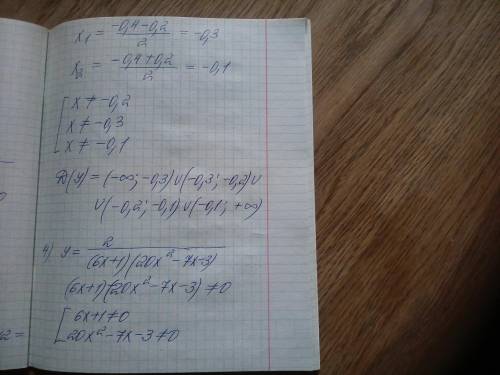 x₁ = (-0,4-0,2)/2 = -0,3
x₂ = (-0,4+0,2)/2 = -0,1
[x ≠ -0,2
x ≠ -0,3
x ≠ -0,1
D(y) = (-∞; -0,3)∪(-0,3; -0,2)∪
∪(-0,2; -0,1)∪(-0,1; +∞)
4) y = 2/((6x+1)(20x²-7x-3))
(6x+1)(20x²-7x-3) ≠ 0
[6x+1 ≠ 0
20x²-7x-3 ≠ 0
2 =